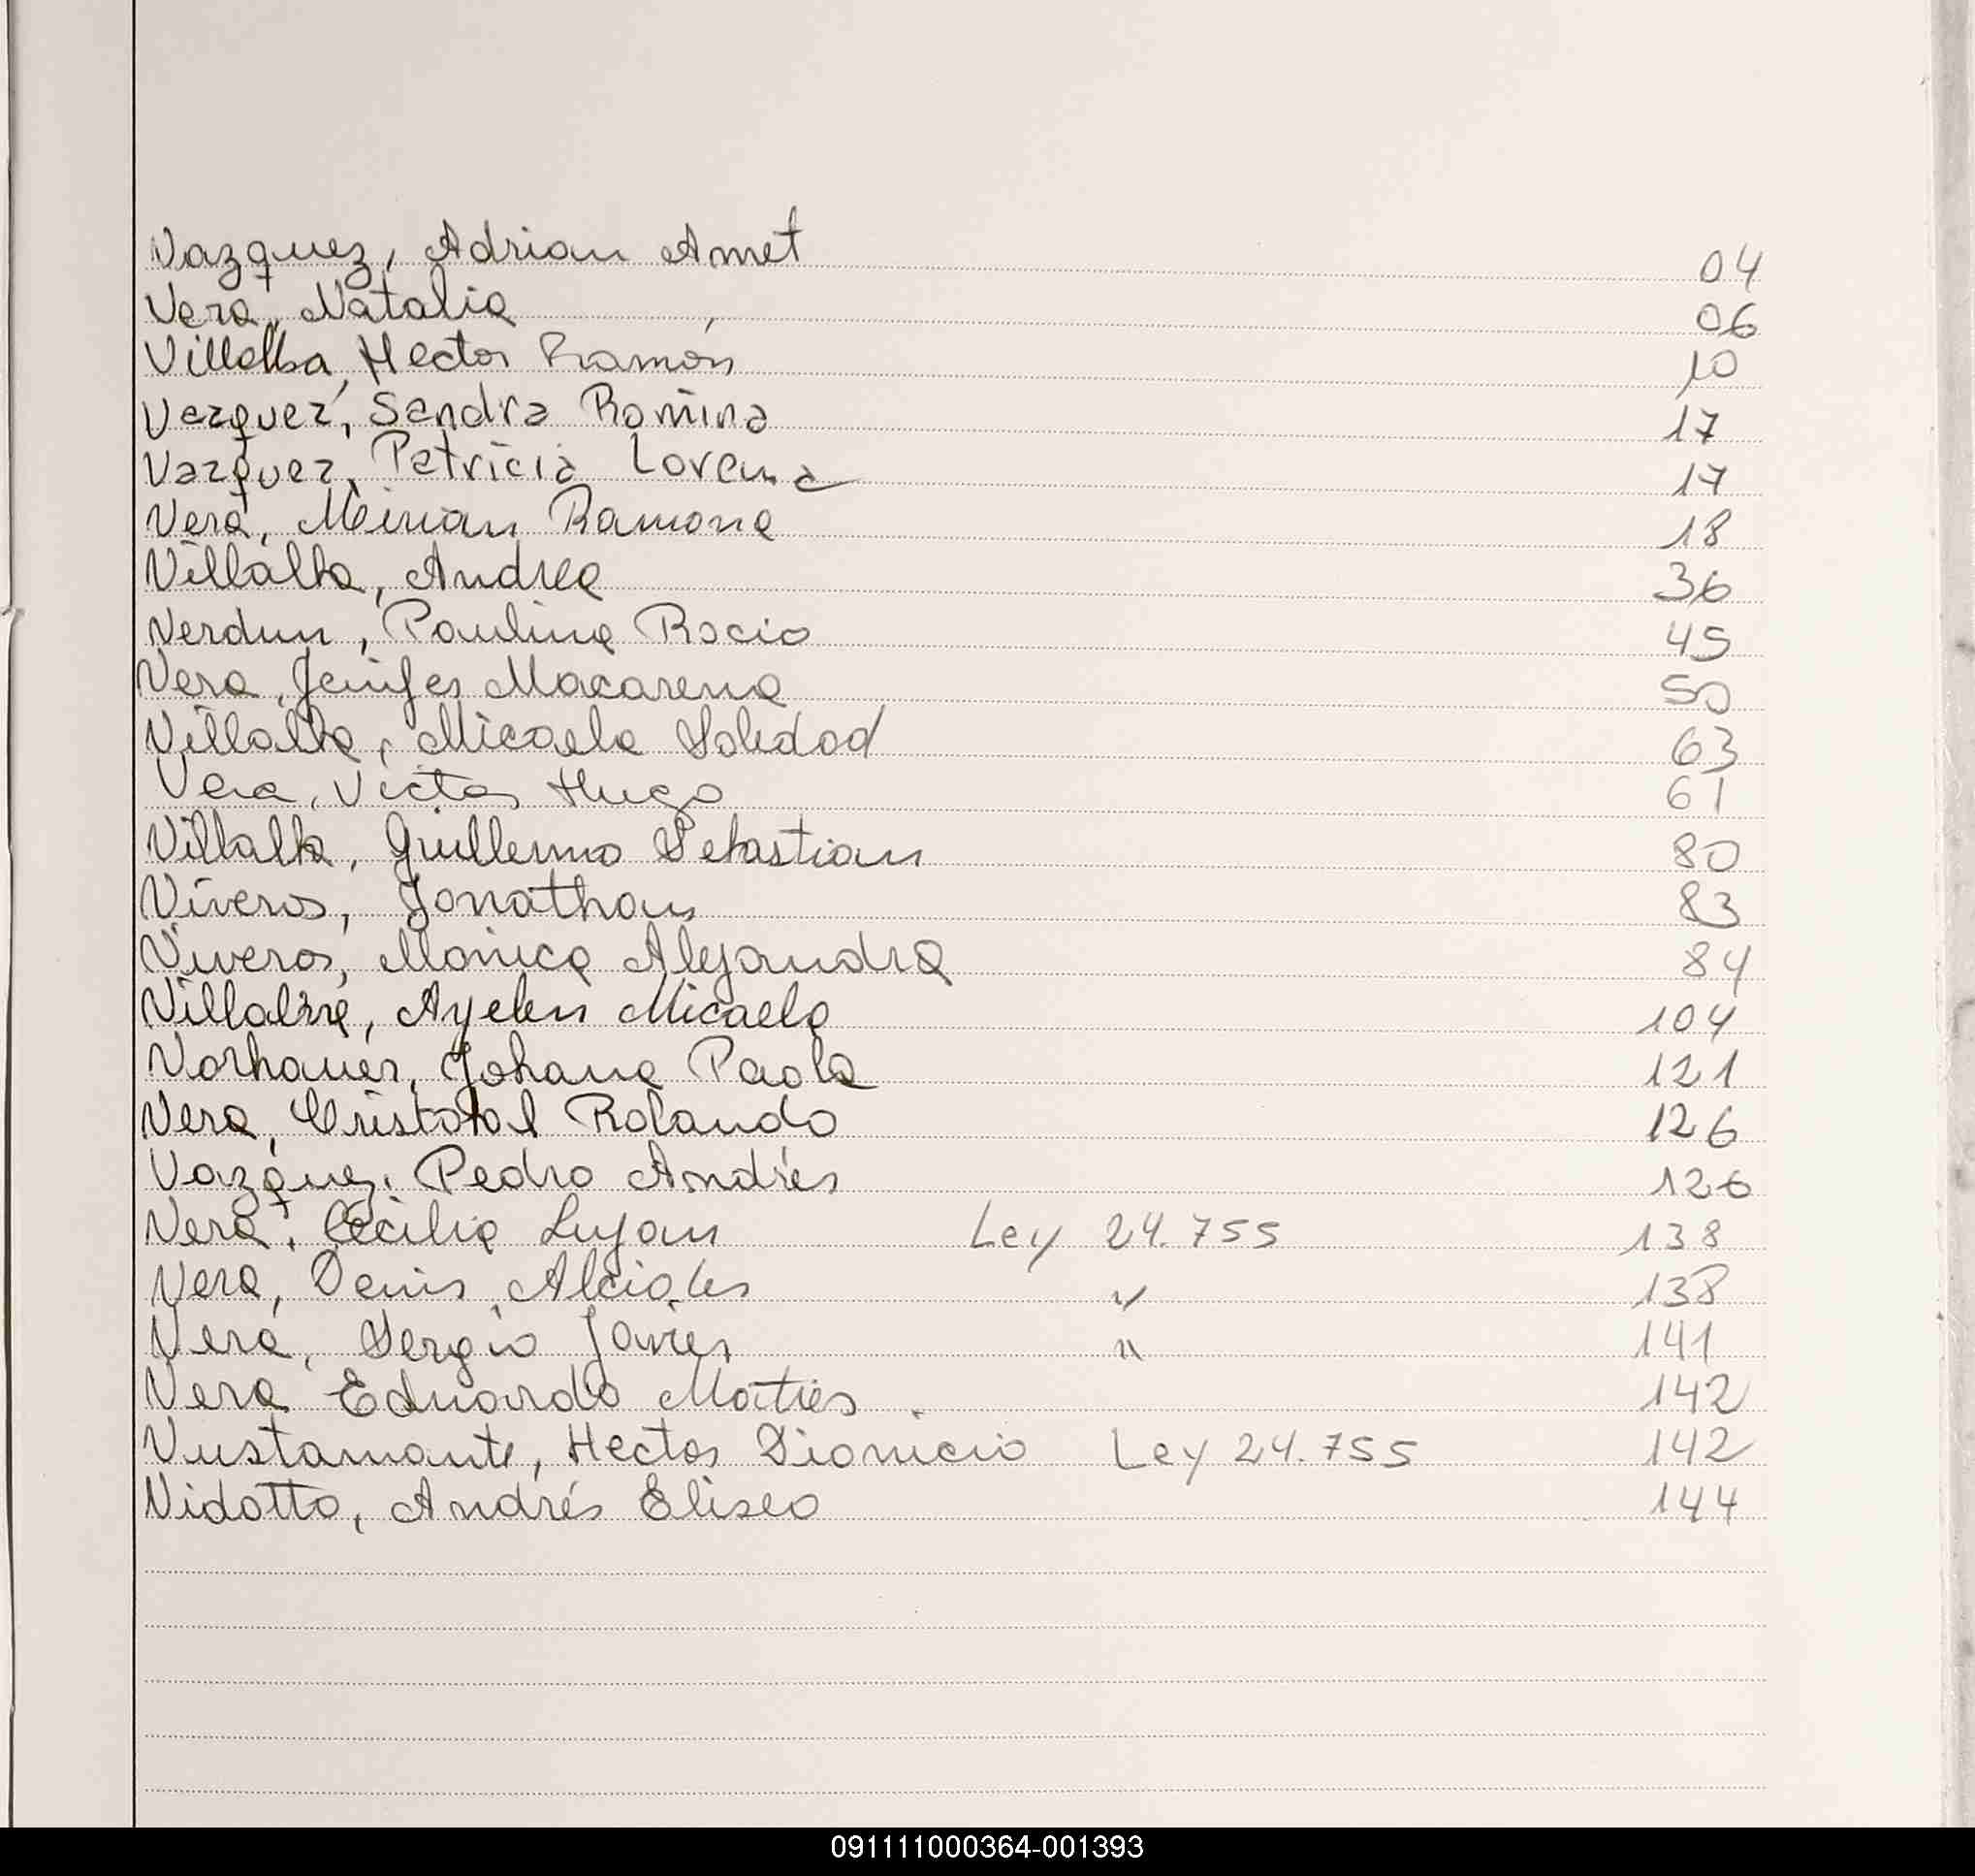 Vazquez, Adrian Amet 04
Vera, Natalia 06
Villalba, Hector Ramón 10
Vazquez, Sandra Romina 17
Vazquez, Patricia Lorena 17
Vera, Mirian Ramona 18
Villalba, Andrea 36
Verdun, Paulina Rocio 45
Vera, Jenifer Macarena 50
Villalba, Micaela Soledad 63
Vera, Victor Hugo 61
Villalba, Guillermo Sebastian 80
Viveros, Jonathan 83
Viveros, Monica Alejandra 84
Ayelen Micaela 104
Vorhauer, Johana Paola 121
Vera, Cristobal Rolando 126
Vazquez, Pedro Andrés 126
Vera, Cecilia Lujan Ley 24.755 138
Vera, Denis Alcides " 138
Vera, Sergio Javier " 141
Vera Eduardo Matias. 142
Vustamante, Hector Dionicio Ley 24.755 142
Vidotto, Andrés Eliseo 144
091111000364-001393